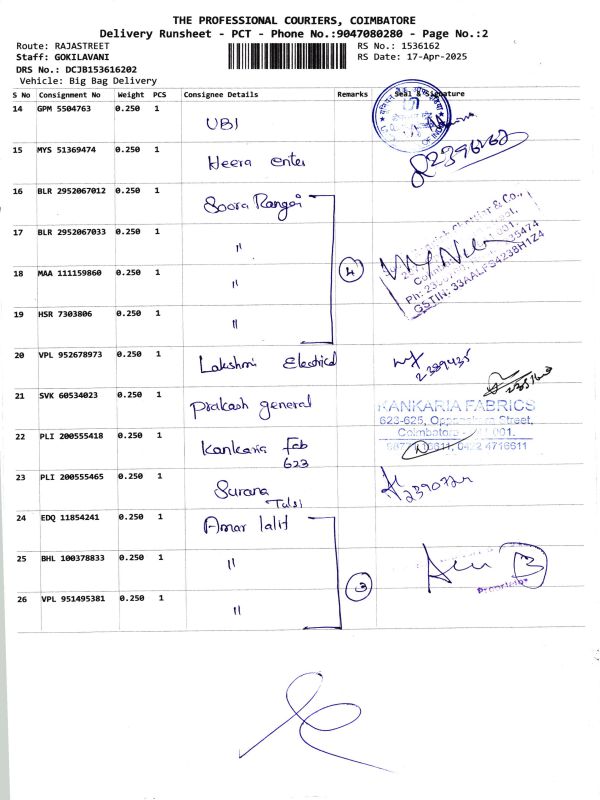 THE PROFESSIONAL COURIERS, COIMBATORE
Delivery Runsheet - PCT - Phone No.:9047080280 - Page No.:2
Route: RAJASTREET
RS No.: 1536162
Staff: GOKILAVANI
RS Date: 17-Apr-2025
DRS No.: DCJB153616202
Vehicle: Big Bag Delivery
S No Consignment No Weight PCS Consignee Details Remarks Seal & Signature
14 GPM 5504763 0.250 1 UBI
15 MYS 51369474 0.250 1 Heera enter
16 BLR 2952067012 0.250 1 Soora Rangai
17 BLR 2952067033 0.250 1 "
18 MAA 111159860 0.250 1 " 4
19 HSR 7303806 0.250 1 "
GSTIN: 33AALFS4238H1Z4
20 VPL 952678973 0.250 1 Lakshmi Electrical 2389435
21 SVK 60534023 0.250 1 Prakash general
KANKARIA FABRICS
623-625, Street,
Coimbatore 001.
0422 4716611
22 PLI 200555418 0.250 1 Kankaria Fab
623
23 PLI 200555465 0.250 1 Surana
Tulsi
24 EDQ 11854241 0.250 1 Amar lalit
25 BHL 100378833 0.250 1 "
3
26 VPL 951495381 0.250 1 "